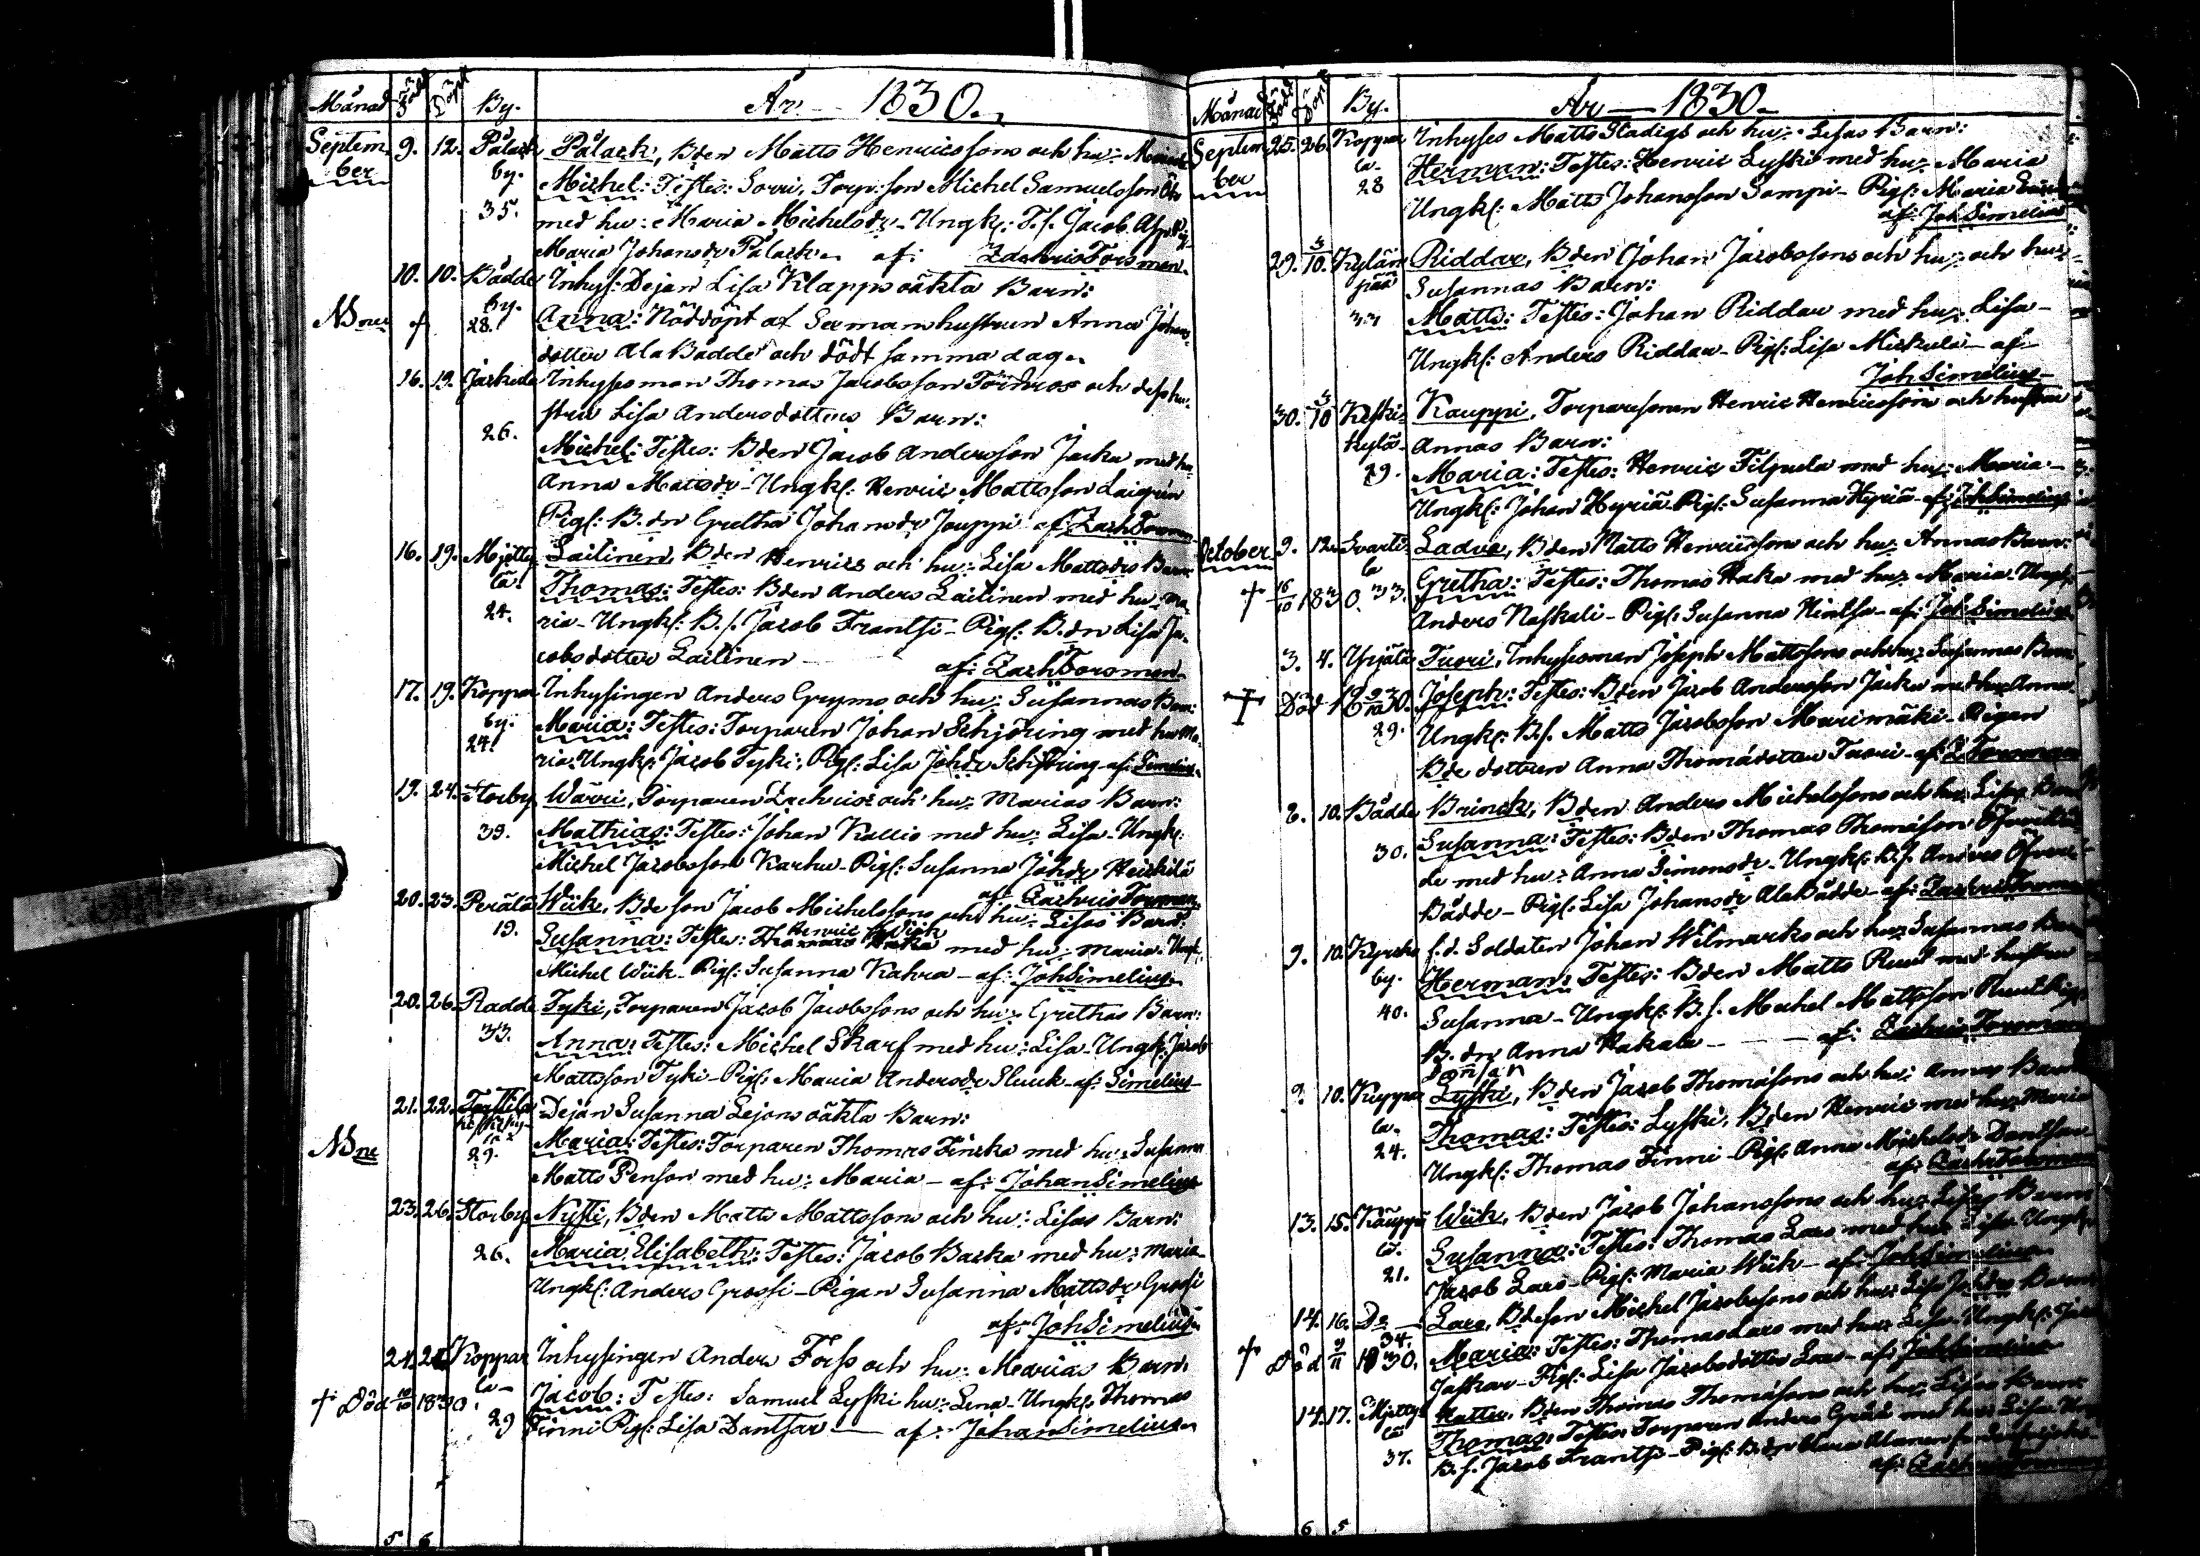 Månad Född Döpt By. År 1830.
Septem 9. 12. Pälack Pälack, Bden Matts Henricssons och hu:
ber by. Michel: Testes: Sorri, Torp: son Michel Samuelsson
35. med hu: Maria Michelsdr - Ungk: T.s. Jacob
Maria Johansdr Pälack af: Zachris Forsman.
10. 10. Bådde Inhys: Dejan Lisa Klapps oäkta Barn:
by. 28. Anna: Nöddöpt af Seemanshustrun Anna Johans
dotter Ala Bådde och dödt samma dag.
16. 19. Inhysesman Thomas Jacobsson och dess hu-
stru Lisa Andersdotters Barn:
26. Michel: Testes: Bden Jacob Andersson Jacku med hu:
Anna Mattsdr - Ungk: Henric Mattsson
Pig: B.dr Gretha Johansdr Jouppi af Zach Forsman
16. 19. Mjetty Lailinen, Bden Henrics och hu: Lisa Mattsdrs Barn
lä. Thomas: Testes: Bden Anders Lailinen med hu: Ma
24. ria - Ungk: B.s. Jacob Frantsi - Pig: B.dr Lisa Ja-
cobsdotter Lailinen af: Zach Forsman.
17. 19. Koppar Inhysingen Anders Gryms och hu: Susannas Barn:
by. Maria: Testes: Torparen Johan Schjöring med hu: Ma-
24. ria, Ungk: Jacob Tyki, Pig: Lisa Johdr Schjöring af: Simelius.
19. 24. Storby Wärri, Torparen Zachriss och hu: Marias Barn:
39. Mathias: Testes: Johan Kallio med hu: Lisa - Ungk:
Michel Jacobsson Karhu - Pig: Susanna Johdr Heickilä
af: Zachris Forsman
20. 23. Perälä Wiik, Bdeson Jacob Michelssons och hu: Lisas Barn:
19. Susanna: Testes: Henric Wiik med hu: Maria - Ungk:
Michel Wiik - Pig: Susanna Kahra - af: Joh Simelius.
20. 26. Radde Tyki, Torparen Jacob Jacobssons och hu: Grethas Barn:
33. Anna: Testes: Michel Skarf med hu: Lisa - Ungk: Jacob
Mattsson Tyki - Pig: Maria Andersdr Sluuk - af: Simelius
21. 22. Dejan Susanna Lejons oäkta Barn:
29. Maria: Testes: Torparen Thomas Finska med hu: Susanna
Matts Penson med hu: Maria - af: Johan Simelius
23. 26. Storby Nysti, Bden Matts Mattssons och hu: Lisas Barn:
26. Maria Elisabeth: Testes: Jacob Backa med hu: Maria
Ungk: Anders Grossi - Pigan Susanna Mattsdr Grossi
af: Joh Simelius
24. 26. Koppar Inhysingen Anders Forss och hu: Marias Barn.
† Död 10/10 1830. la - Jacob: Testes: Samuel Lyski hu: Lena - Ungk: Thomas
29 Finni Pig: Lisa Dantsar - af: Johan Simelius.
5 6
Månad Född Döpt By. År 1830.
Septem 25. 26. Koppar Inhyses Matts Stadigs och hu: Lisas Barn:
ber la. Herman: Testes: Henric Lyski med hu: Maria
28 Ungk: Matts Johansson Sampi - Pig: Maria
af: Joh Simelius
29. 3/10. Kyläm Riddar, Bden Johan Jacobssons och hu: och hu:
pää Susannas Barn:
33 Matts: Testes: Johan Riddar med hu: Lisa -
Ungk: Anders Riddar - Pig: Lisa Mickula - af
Joh Simelius
30. 3/10 Keski Kauppi, Torparesonen Henric Henricsson och hustru
kylä. Annas Barn:
29. Maria: Testes: Henric Filpula med hu: Maria -
Ungk: Johan Hyriä - Pig: Susanna Hyriä - af: Joh Simelius
October 9. 12. Svarti Ladva, Bden Matts Henricssons och hu: Annas Barn:
† 16/10 1830. 33. Gretha: Testes: Thomas Haka med hu: Maria. Ungk:
Anders Naskali - Pig: Susanna Hintsa - af: Joh Simelius
3. 4. Yrjälä Tuori, Inhysesman Joseph Mattssons och hu: Susannas Barn
† Död 18 9/10 30. Joseph: Testes: Bden Jacob Andersson Jacku med hu: Anna
29. Ungk: B.s. Matts Jacobsson Marimäki - Pigan
Bde dottren Anna Thomasdotter Tuori - af: Z Forsman
8. 10. Bådde Brinck, Bden Anders Michelssons och hu: Lisas Barn
30. Susanna: Testes: Bden Thomas Thomasson
de med hu: Anna Simonsdr - Ungk: B.s. Anders Öfver
Bådde - Pig: Lisa Johansdr Ala Bådde - af: Zachris Forsman
9. 10. Kyrcko f.d. Soldaten Johan Wilmarks och hu: Susannas Barn
by. Herman: Testes: Bden Matts Ruut med hustru
40. Susanna - Ungk: B.s. Michel Mattsson Ruut Pig:
B. dr Anna Hakala - af: Zachris Forsman
Dansar
9. 10. Koppar Lyski, Bden Jacob Thomassons och hu: Annas Barn
la. Thomas: Testes: Lyski, Bden Henric med hu: Maria
24. Ungk: Thomas Finni - Pig: Anna Michelsdr Dantsar
af: Zach Forsman
13. 15. Kauppi Wiik, Bden Jacob Johanssons och hu: Lisas Barn
lä. Susanna: Testes: Thomas Laes med hu: Lisa. Ungk:
21. Jacob Laes - Pig: Maria Wiik - af: Joh Simelius
14. 16. Do - Laes, Bdeson Michel Jacobssons och hu: Lisa Johdrs Barn
34.
† Död 9/11 1830. Maria: Testes: Thomas Laes med hu: Lisa - Ungk:
Jaskar - Pig: Lisa Jacobsdotter Laes - af: Joh Simelius
14. 17. Mjetty Katter, Bden Thomas Thomassons och hu: Lisas Barn
lä Thomas: Testes: Torparen Anders med hu: Lisa
37. B.s. Jacob Frantsi - Pig: B.dr
af: Zachris Forsman
6 5